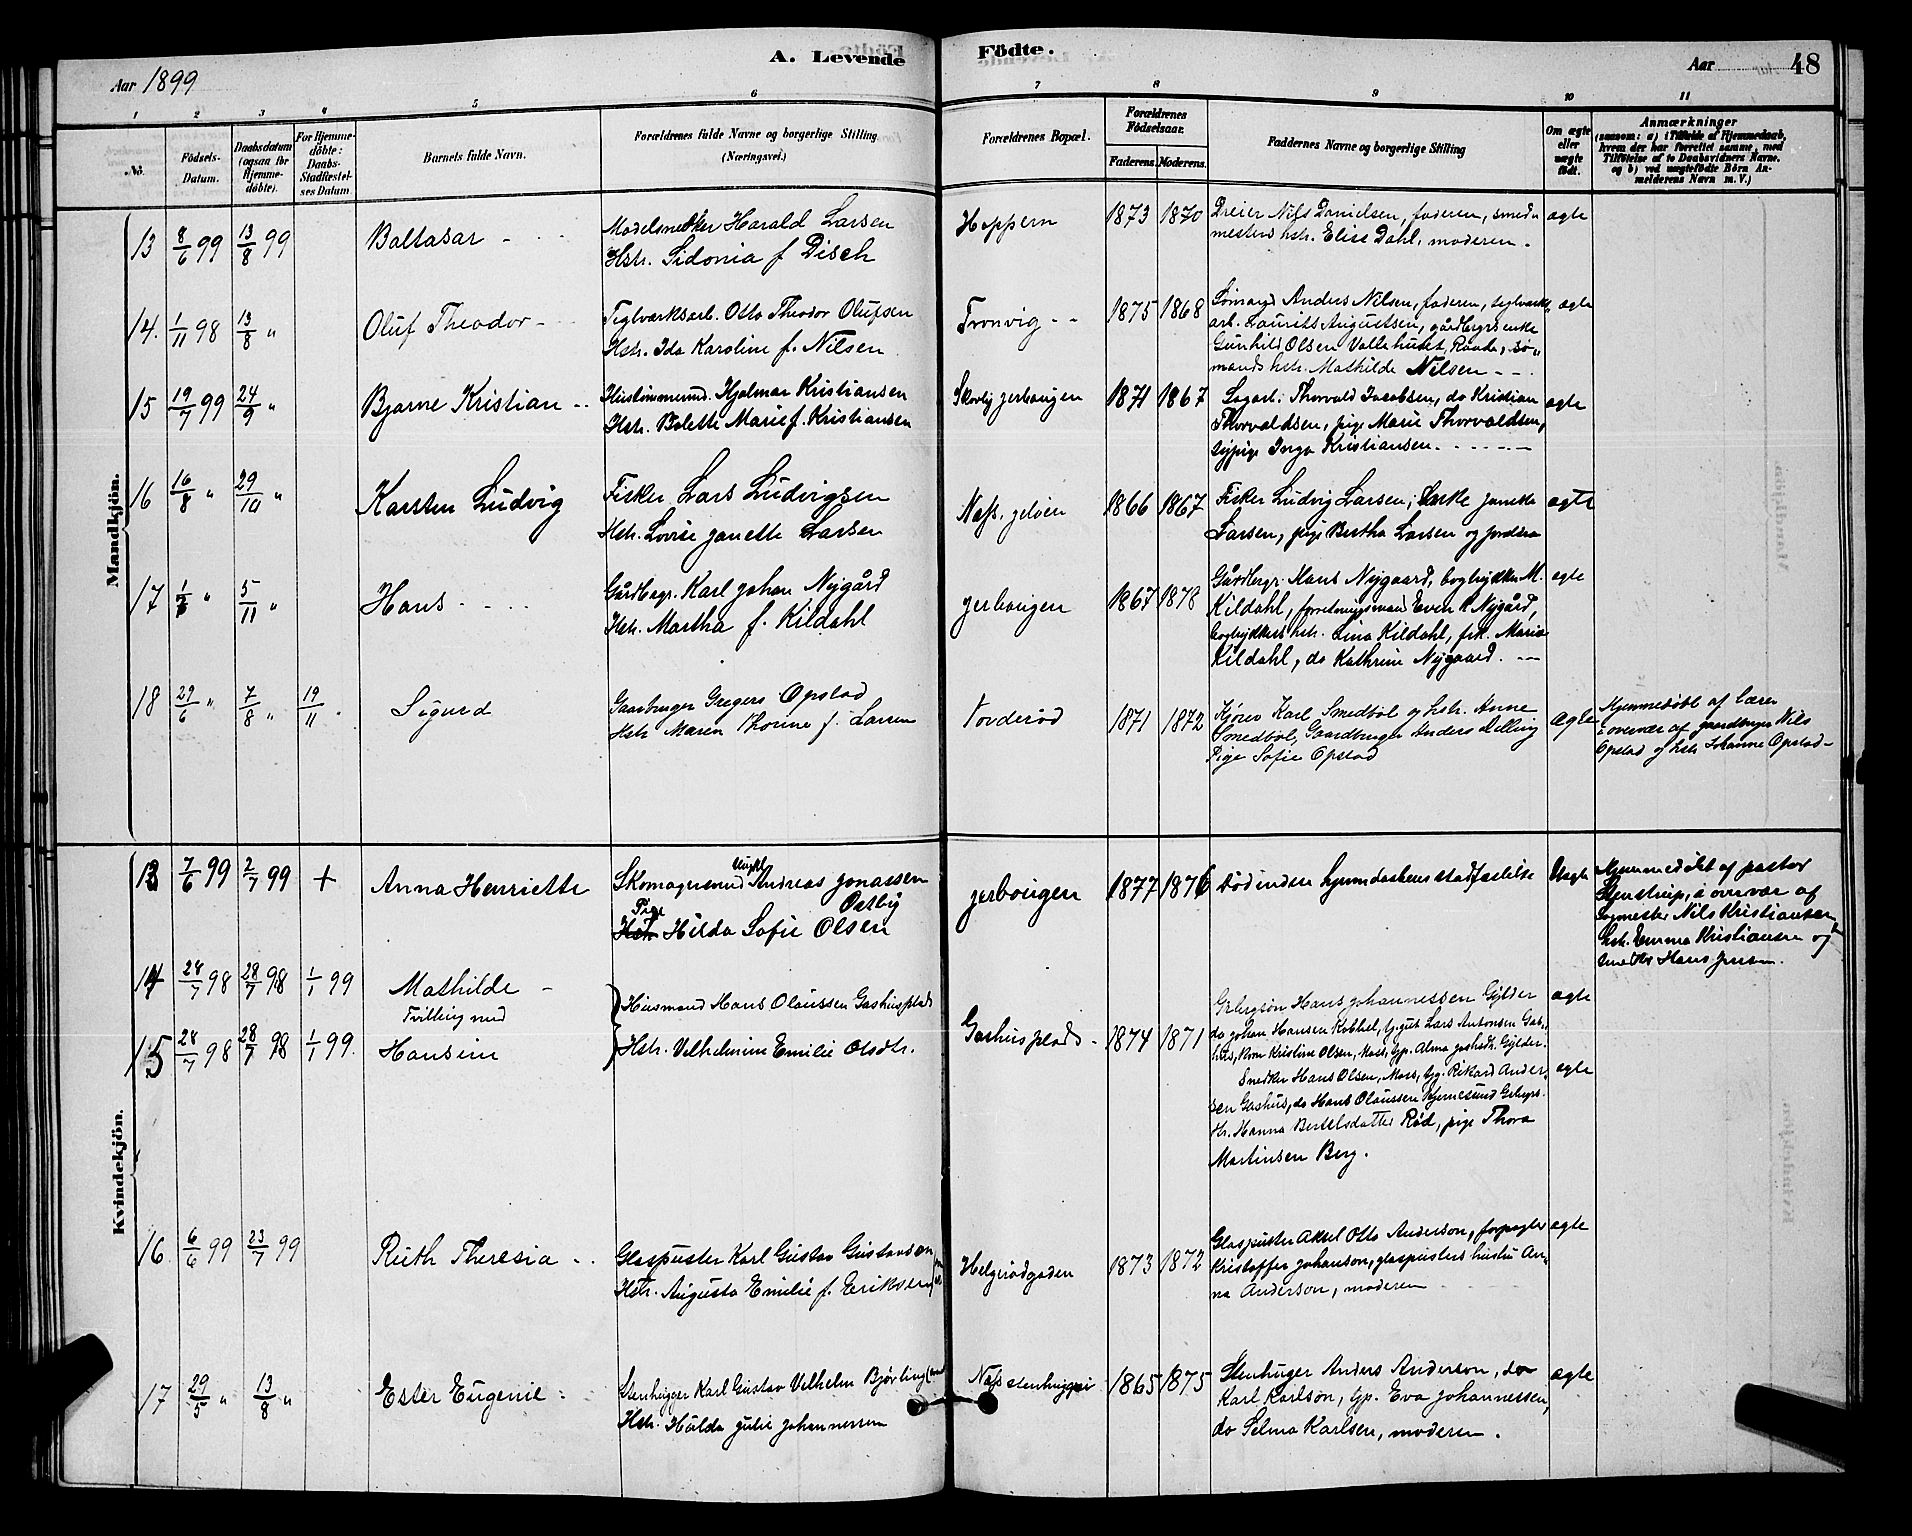 A. Levende Födte.
Aar 1899
Aar 48
1 2 3 4 5 6 7 8 9 10 11
No.
Födsels-Datum.
Daabsdatum (ogsaa for Hjemme-döbte).
For Hjemme-döbte: Daabs-Stadfæstel-ses Datum.
Barnets fulde Navn.
Forældrenes fulde Navne og borgerlige Stilling (Næringsvei.)
Forældrenes Bopæl.
Forældrenes Födselsaar.
Faderens. Moderens.
Faddernes Navne og borgerlige Stilling
Om ægte eller uægte födt.
Anmærkninger
(saasom: a) i Tilfælde af Hjemmedaab, hvem der har forrettet samme, med Tilföielse af to Daabsvidners Navne. og b) ved uægtefödte Börn Anmelderens Navn m. V.)
Mandkjön.
13 8/6 99 13/8 99 Baltasar
Modelsnedker Harald Larsen
Hstr. Sidonia f Disch
Hoppern 1873 1870
Dreier Nils Danielsen, faderen, smede
mesters hstr. Elise Dahl, moderen.
ægte
14. 1/11 98 13/8 " Oluf Theodor
Teglværksarb. Otto Theodor Olufsen
Hstr. Ida Karoline f. Nilsen
Tronvig 1875 1868
Sømand Anders Nilsen, faderen, teglværks
arb. Laurits Augustsen, gårdbrgrs enke
Gunhild Olsen Vallehuset, Raade, sø-
mands hstr. Mathilde Nilsen
ægte
15 19/7 99 24/9 " Bjarne Kristian
Hustømmermd. Hjalmar Kristiansen
Hstr. Bolette Marie f. Kristiansen
Skovly jerbougen 1871 1867
Sagarb. Thorvald Jacobsen, do Kristian
Thorvaldsen, pige Marie Thorvaldsen,
sypige Inga Kristiansen.
ægte
16 16/8 " 29/10 " Karsten Ludvig
Fisker Lars Ludvigsen
Hstr. Lovise Janette Larsen
Næss. jeløen 1866 1867
Fisker Ludvig Larsen, Enke Janette
Larsen, pige Bertha Larsen og forældre
ægte
17 " 5/11 " Hans
Gårdbrgr. Karl Johan Nygård
Hstr. Martha f. Kildahl
jerbougen 1867 1878
Gårdbrgr. Hans Nygaard, bogtrykker M.
Kildahl, forretningsmand Even Nygård,
bogtrykkers hstr. Lina Kildahl, frk. Marie
Kildahl, do Kathrine Nygaard.
ægte
18 29/6 " 7/8 " 19/11. Sigurd
Gaardbruger Gregers Opstad
Hstr Maren Thorine f. Larsen
Norderød 1871 1872
Kjører Karl Smedbøl og hstr. Anne
Smedbøl, Gaardbruger Anders Delling
Pige Sofie Opstad
ægte
Hjemmedøbt af Lærer
i overvær af gaardbruger Nils
Opstad og hstr Johanne Opstad
Kvindekjön.
13 7/6 99 2/7 99 + Anna Henriette
Skomagersvend Ungkl Andreas Jonassen
Østby
Pige Hstr Hilda Sofie Olsen
jerbougen 1877 1876
Død inden hjemmedaabens stadfæstelse
Uægte
Hjemmedøbt af pastor
Stenstrup, i overvær af
Nils Kristiansen
hstr. Emma Kristiansen og
Hans Jensen.
14 28/7 98 28/7 98 1/1 99 Mathilde
Tvilling med
15 28/7 98 28/7 98 1/1 99. Hansine
Husmand Hans Olaussen Gashusplads
Hstr. Vilhelmine Emilie Olsdtr.
Gashusplads 1874 1871
Gbrgsøn Hans Johannessen Gylder
do Johan Hansen Kobbel, Lars Antonsen Gas-
hus, Kristine Olsen, Moss, Alma Gylder.
ægte
Snedker Hans Olsen, Moss, Rikard Ander-
sen Gashus, do Hans Olaussen Kjernesund
Hanna Bertelsdatter Rød, pige Thora
Martinsen Berg.
ægte
16 6/6 99 23/7 99 Ruth Theresia
Glaspuster Karl Gustav Gustavson
Hstr. Augusta Emilie f. Eriksen
Helgerødgaden 1873 1872
Glaspuster Aksel Otto Anderson, forpagter
Kristoffer Johanson, glaspusters hustru An-
na Anderson, moderen
ægte
17 29/5 " 13/8 " Ester Eugenie
Stenhugger Karl Gustav Vilhelm Bjørling
Hstr. Hulda Julie Johannessen
Næss stenhuggeri 1865 1875
Stenhuger Anders Anderson, do
Karl Karlson, Gp. Eva Johannessen,
do Selma Karlsen, moderen.
ægte